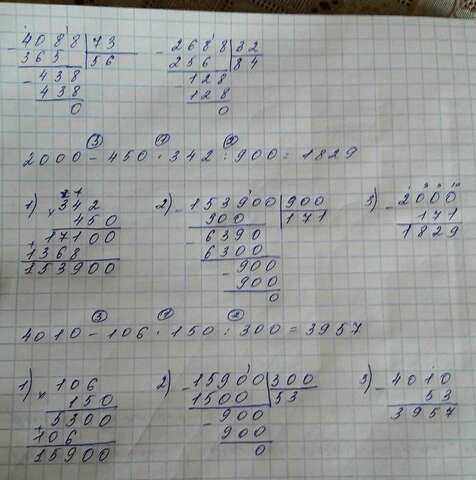 4088 | 73    2688 | 32
365 | 56    256 | 84
- 438    - 128
438    128
0    0
③ ① ②
2000 - 450 · 342 : 900 = 1829
1) × 342    2) - 153900 | 900    3) - 2000
450    900 | 171    171
+ 17100    - 6390    1829
1368    6300
153900    - 900
900
0
③ ① ②
4010 - 106 · 150 : 300 = 3957
1) × 106    2) - 15900 | 300    3) - 4010
150    1500 | 53    53
+ 5300    - 900    3957
106    900
15900    0